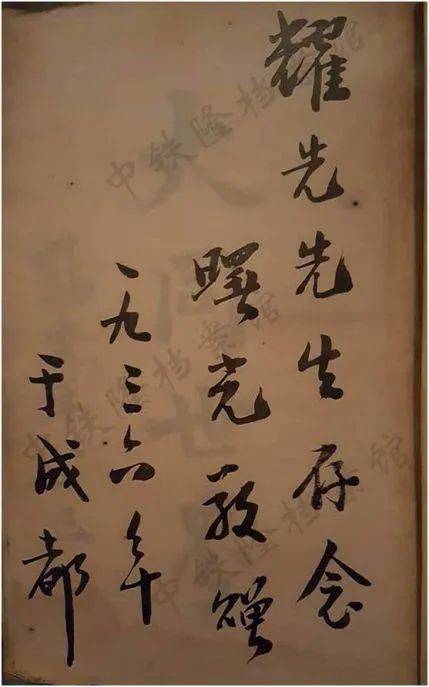 耀先先生存念
曙光敬赠
一九三六年
于成都
中铁隆档案馆
中铁隆档案馆
中铁隆档案馆